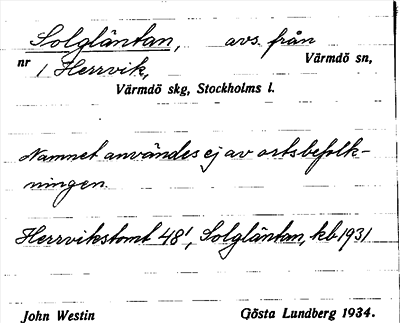 Solgläntan, avs. från
nr Värmdö sn,
1 Herrvik,
Värmdö skg, Stockholms l.
Namnet användes ej av ortsbefolk-
ningen.
Herrvikstomt 48¹, Solgläntan, kb 1931
John Westin Gösta Lundberg 1934.